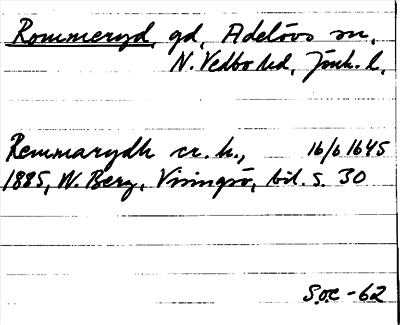 Rommeryd, gd, Adelövs sn,
N. Vedbo hd, Jönk. l.
Remmarydh cr. h., 16/6 1645
1885, W. Berg, Visingsö, bil. s. 30
S.o.c. -62